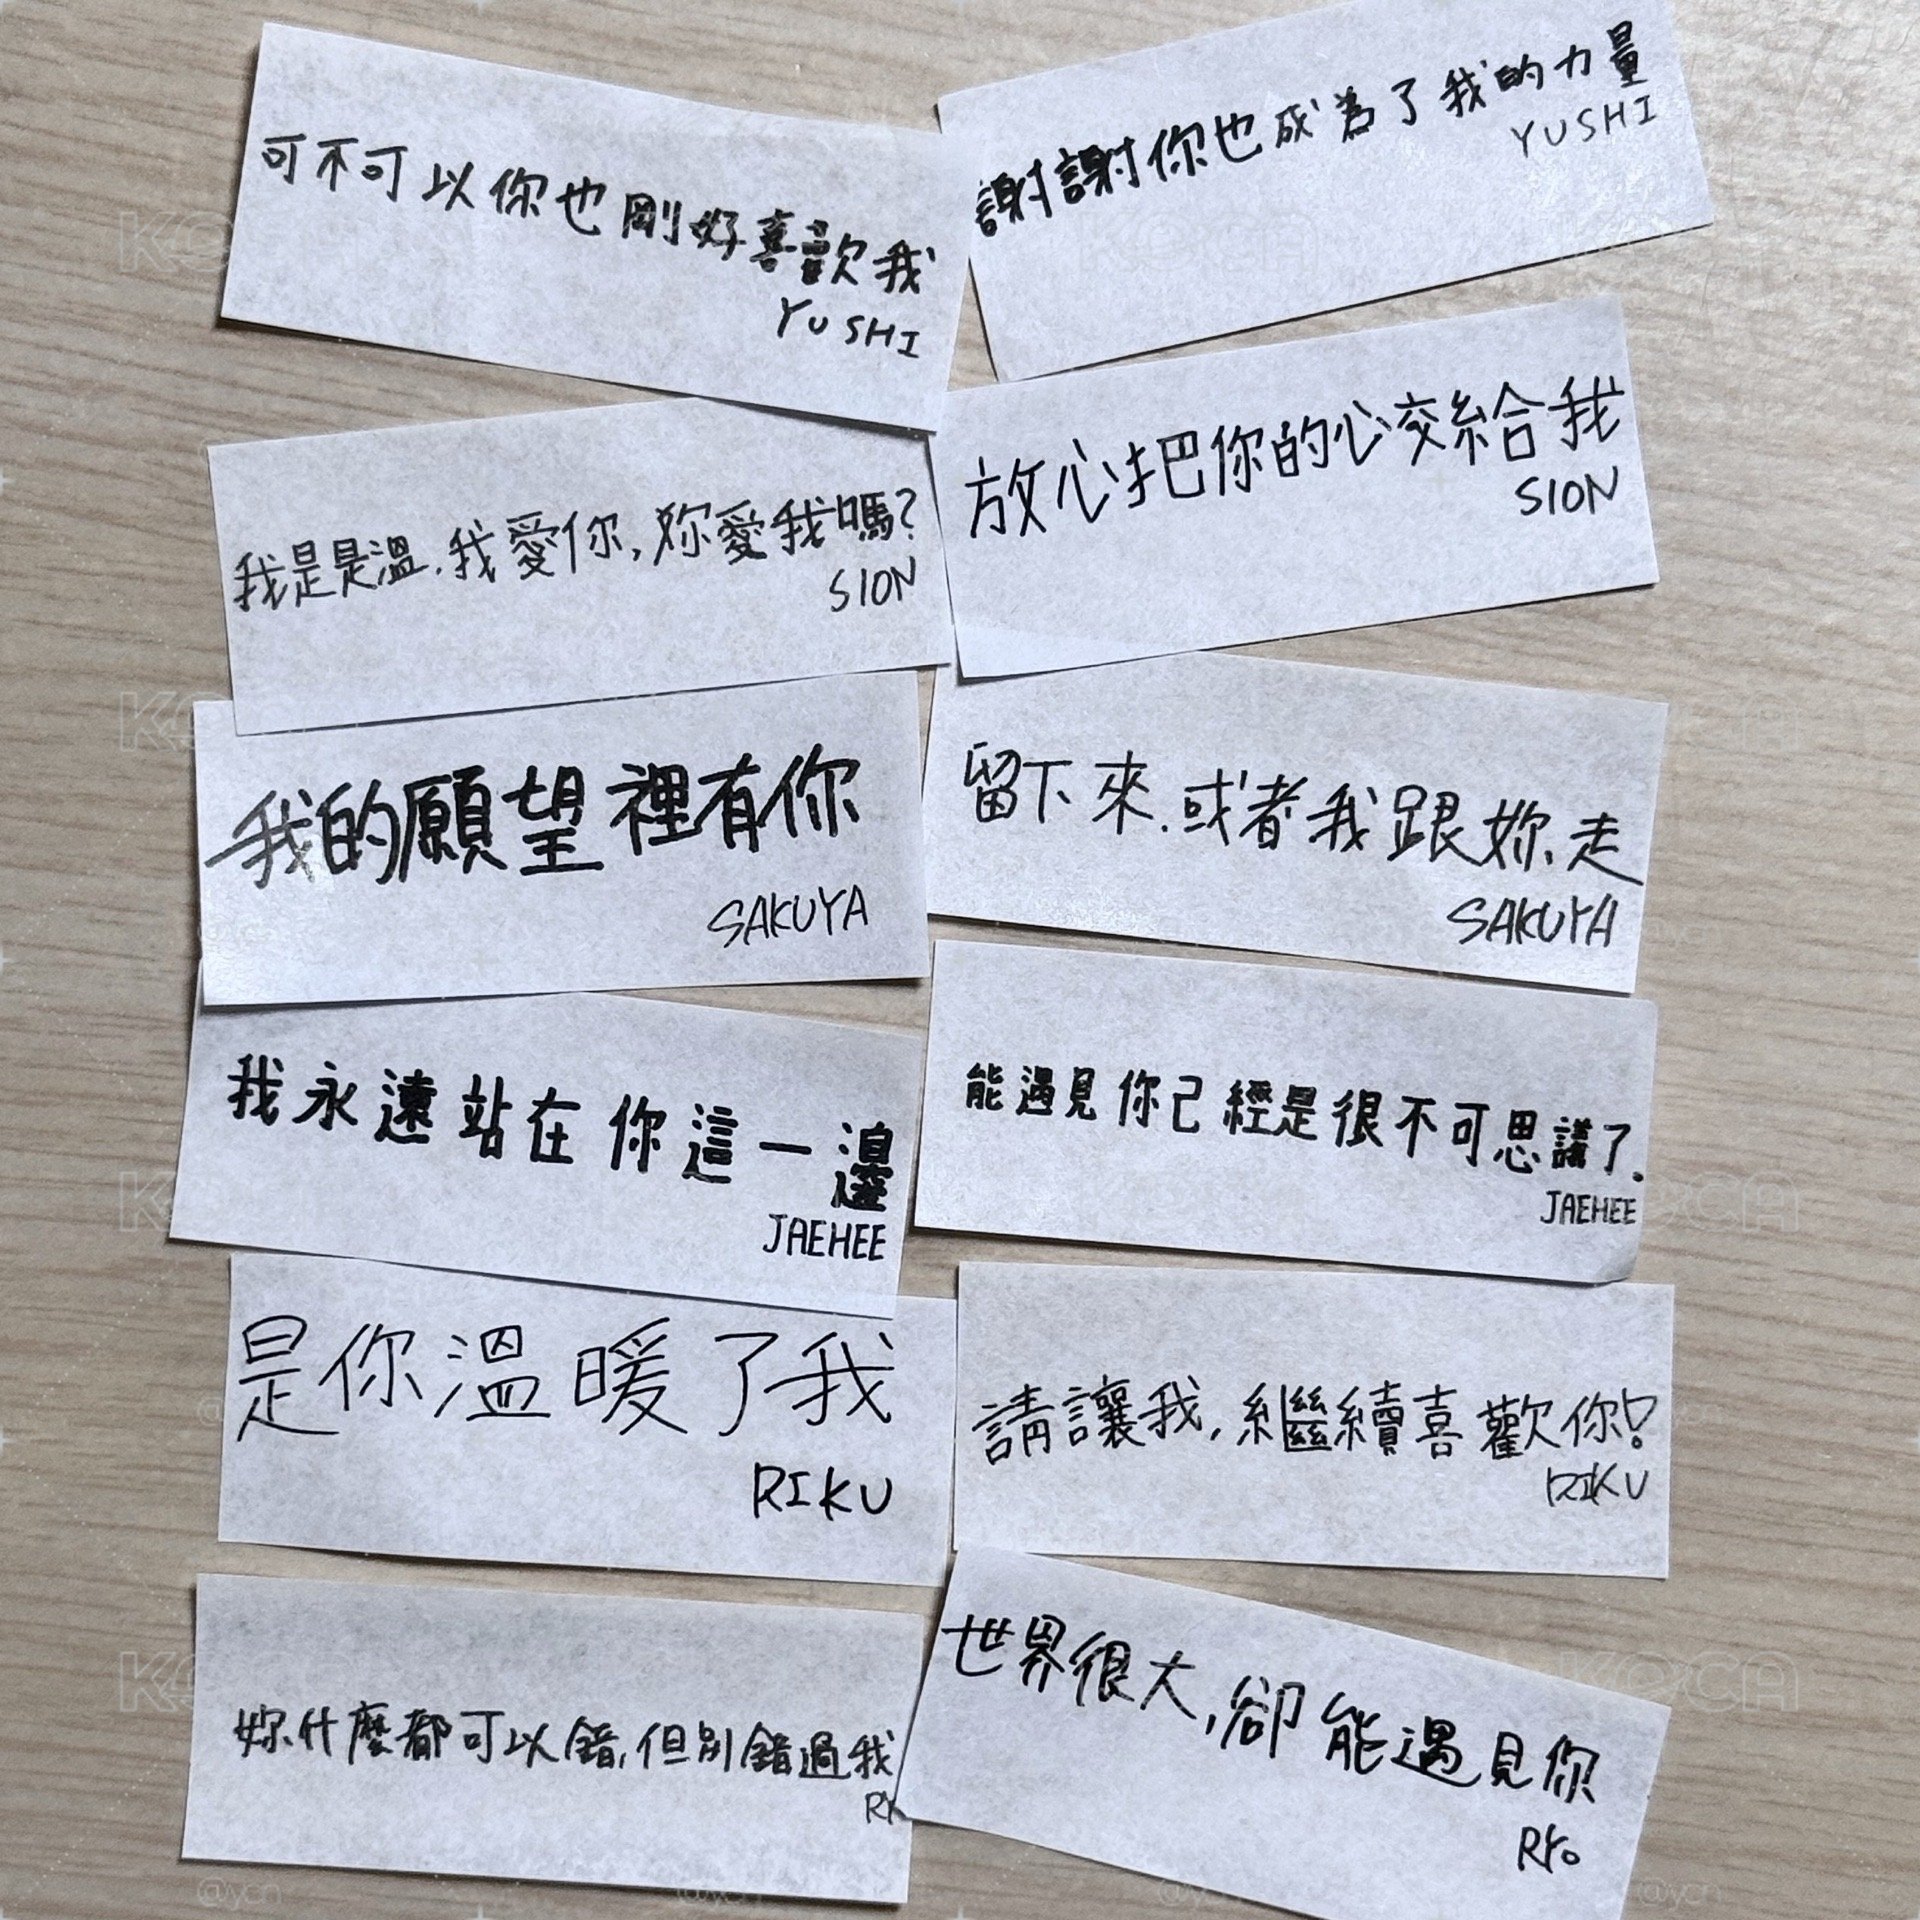 可不可以你也剛好喜歡我
YUSHI
謝謝你也成為了我的力量
YUSHI
我是是溫.我愛你,妳愛我嗎?
SION
放心把你的心交給我
SION
我的願望裡有你
SAKUYA
留下來.或者我跟妳走
SAKUYA
我永遠站在你這一邊
JAEHEE
能遇見你已經是很不可思議了.
JAEHEE
是你溫暖了我
RIKU
請讓我,繼續喜歡你!
RIKU
妳什麼都可以錯,但別錯過我
世界很大,卻能遇見你
RYo